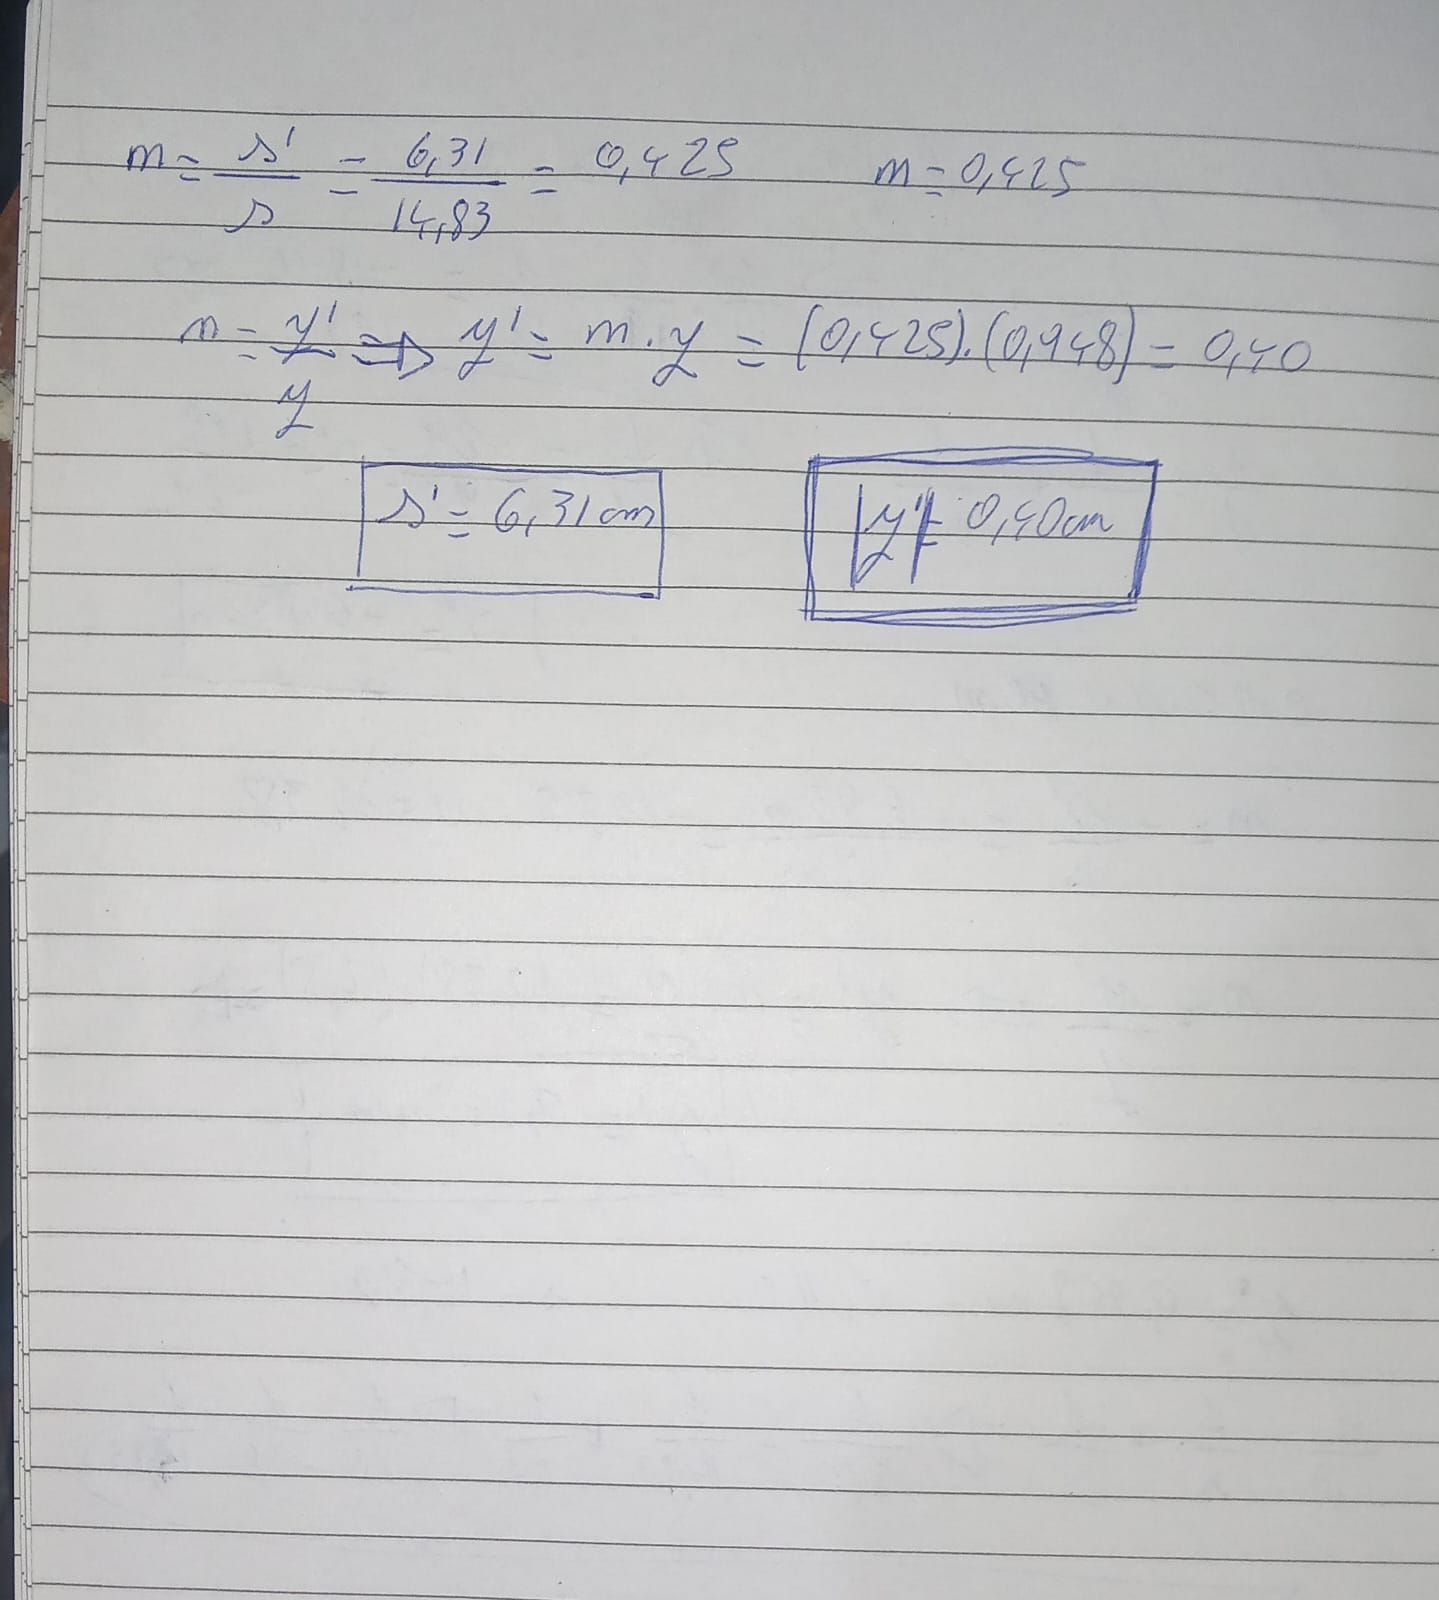 m = s'/s = 6,31/14,83 = 0,425 m = 0,425
m = y'/y ⇒ y' = m . y = (0,425).(0,948) = 0,40
s' = 6,31 cm |y'| = 0,40 cm